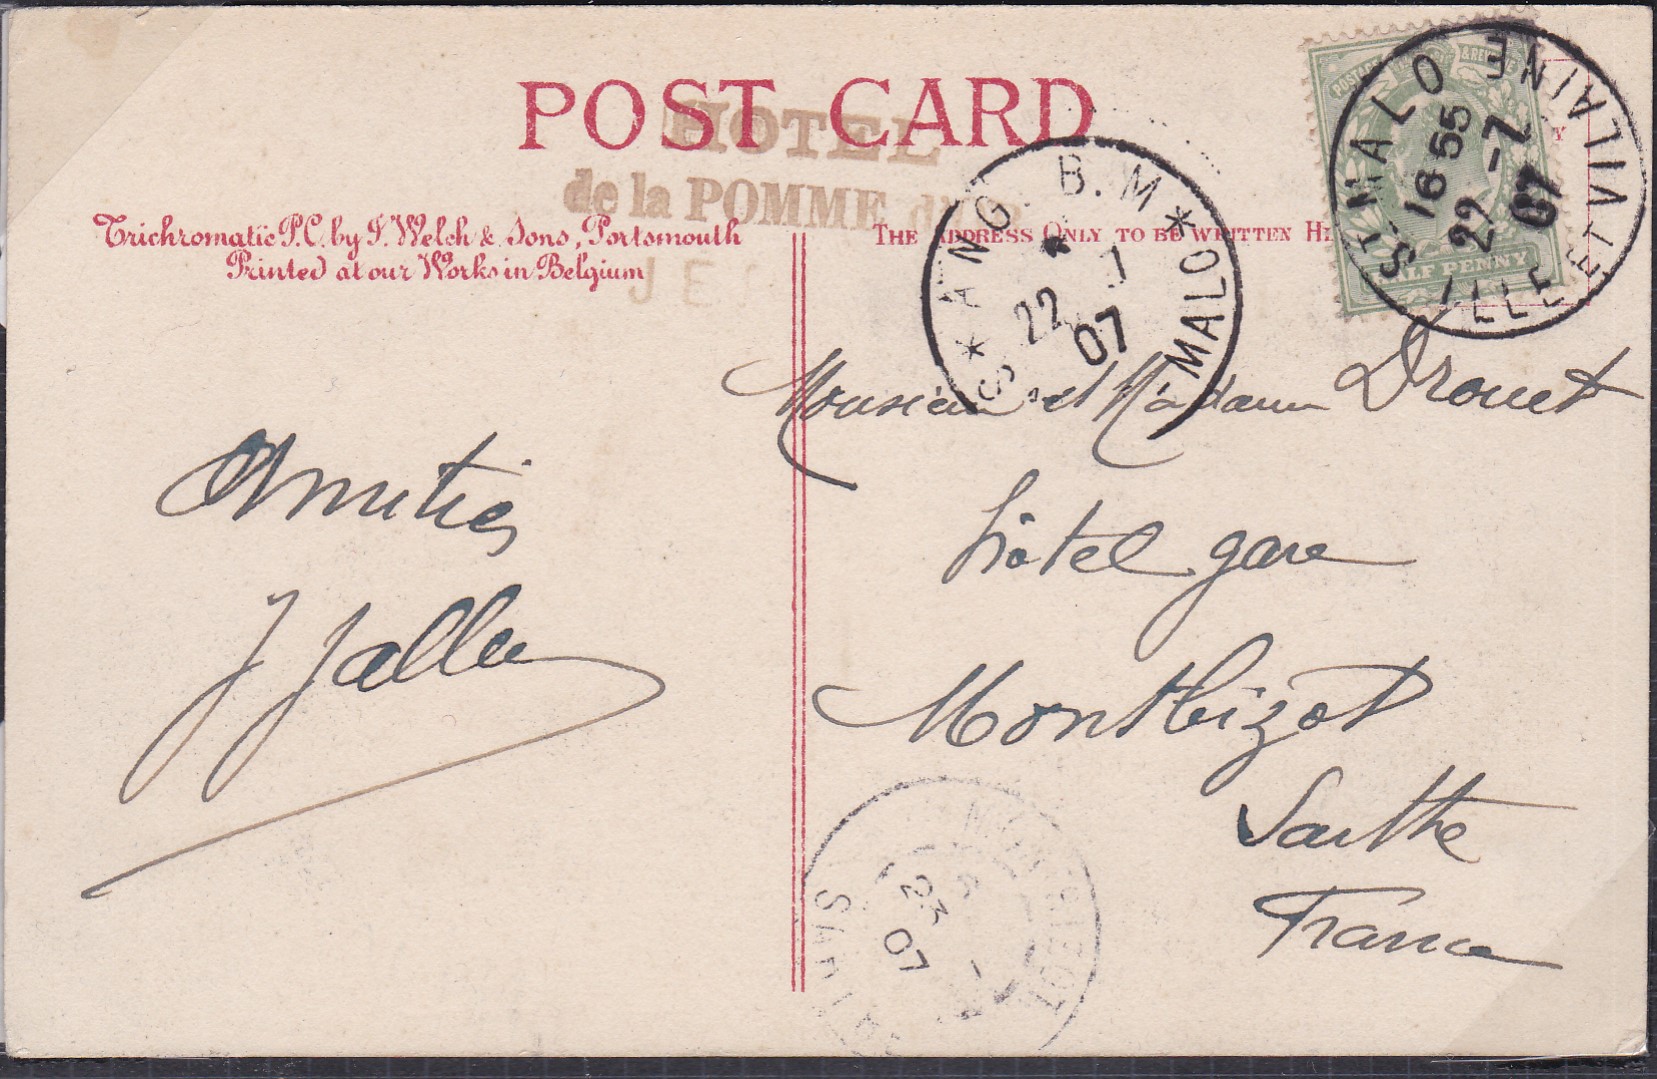 POST CARD
HOTEL
de la POMME d'OR
JE
Trichromatic P.C. by J. Welch & Sons, Portsmouth
Printed at our Works in Belgium
THE ADDRESS ONLY TO BE WRITTEN
ANG. B.M * MALO
22 07
ST MALO
ILLE ET VILAINE
16 55
22 -7
07
POSTAGE & REVENUE
HALF PENNY
Monsieur et Madame Drouet
hôtel gare
Montbizot
Sarthe
France
Amitiés
23
07